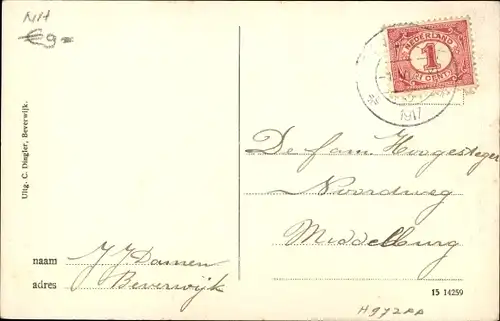 €9-
Uitg. C. Dingler, Beverwijk.
NEDERLAND
1
CENT
1917
De fam. Hoogesteger
Noordweg
Middelburg
naam J J Damen
adres Beverwijk
15 14259
H972PA